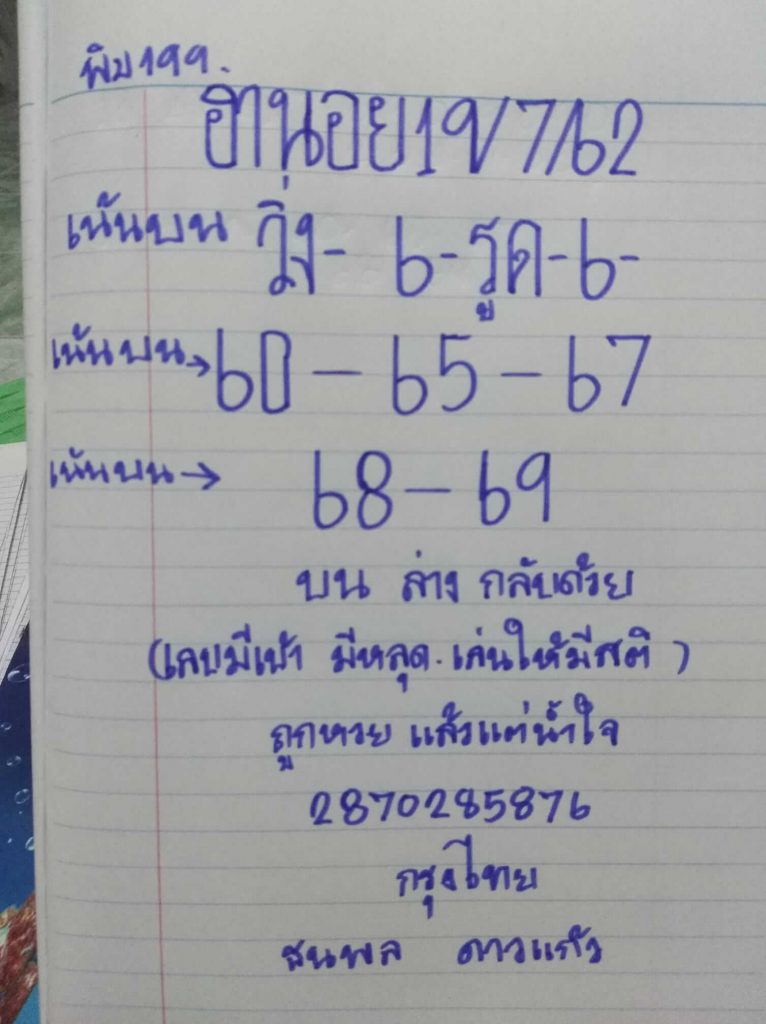 พิม199.
ฮานอย19/7/62
เน้นบน วิ่ง- 6-รูด-6-
เน้นบน→60-65-67
เน้นบน→ 68-69
บน ล่าง กลับด้วย
(เลขมีเข้า มีหลุด.เล่นให้มีสติ)
ถูกหวย แล้วแต่น้ำใจ
2870285876
กรุงไทย
ธนพล ดาวแก้ว